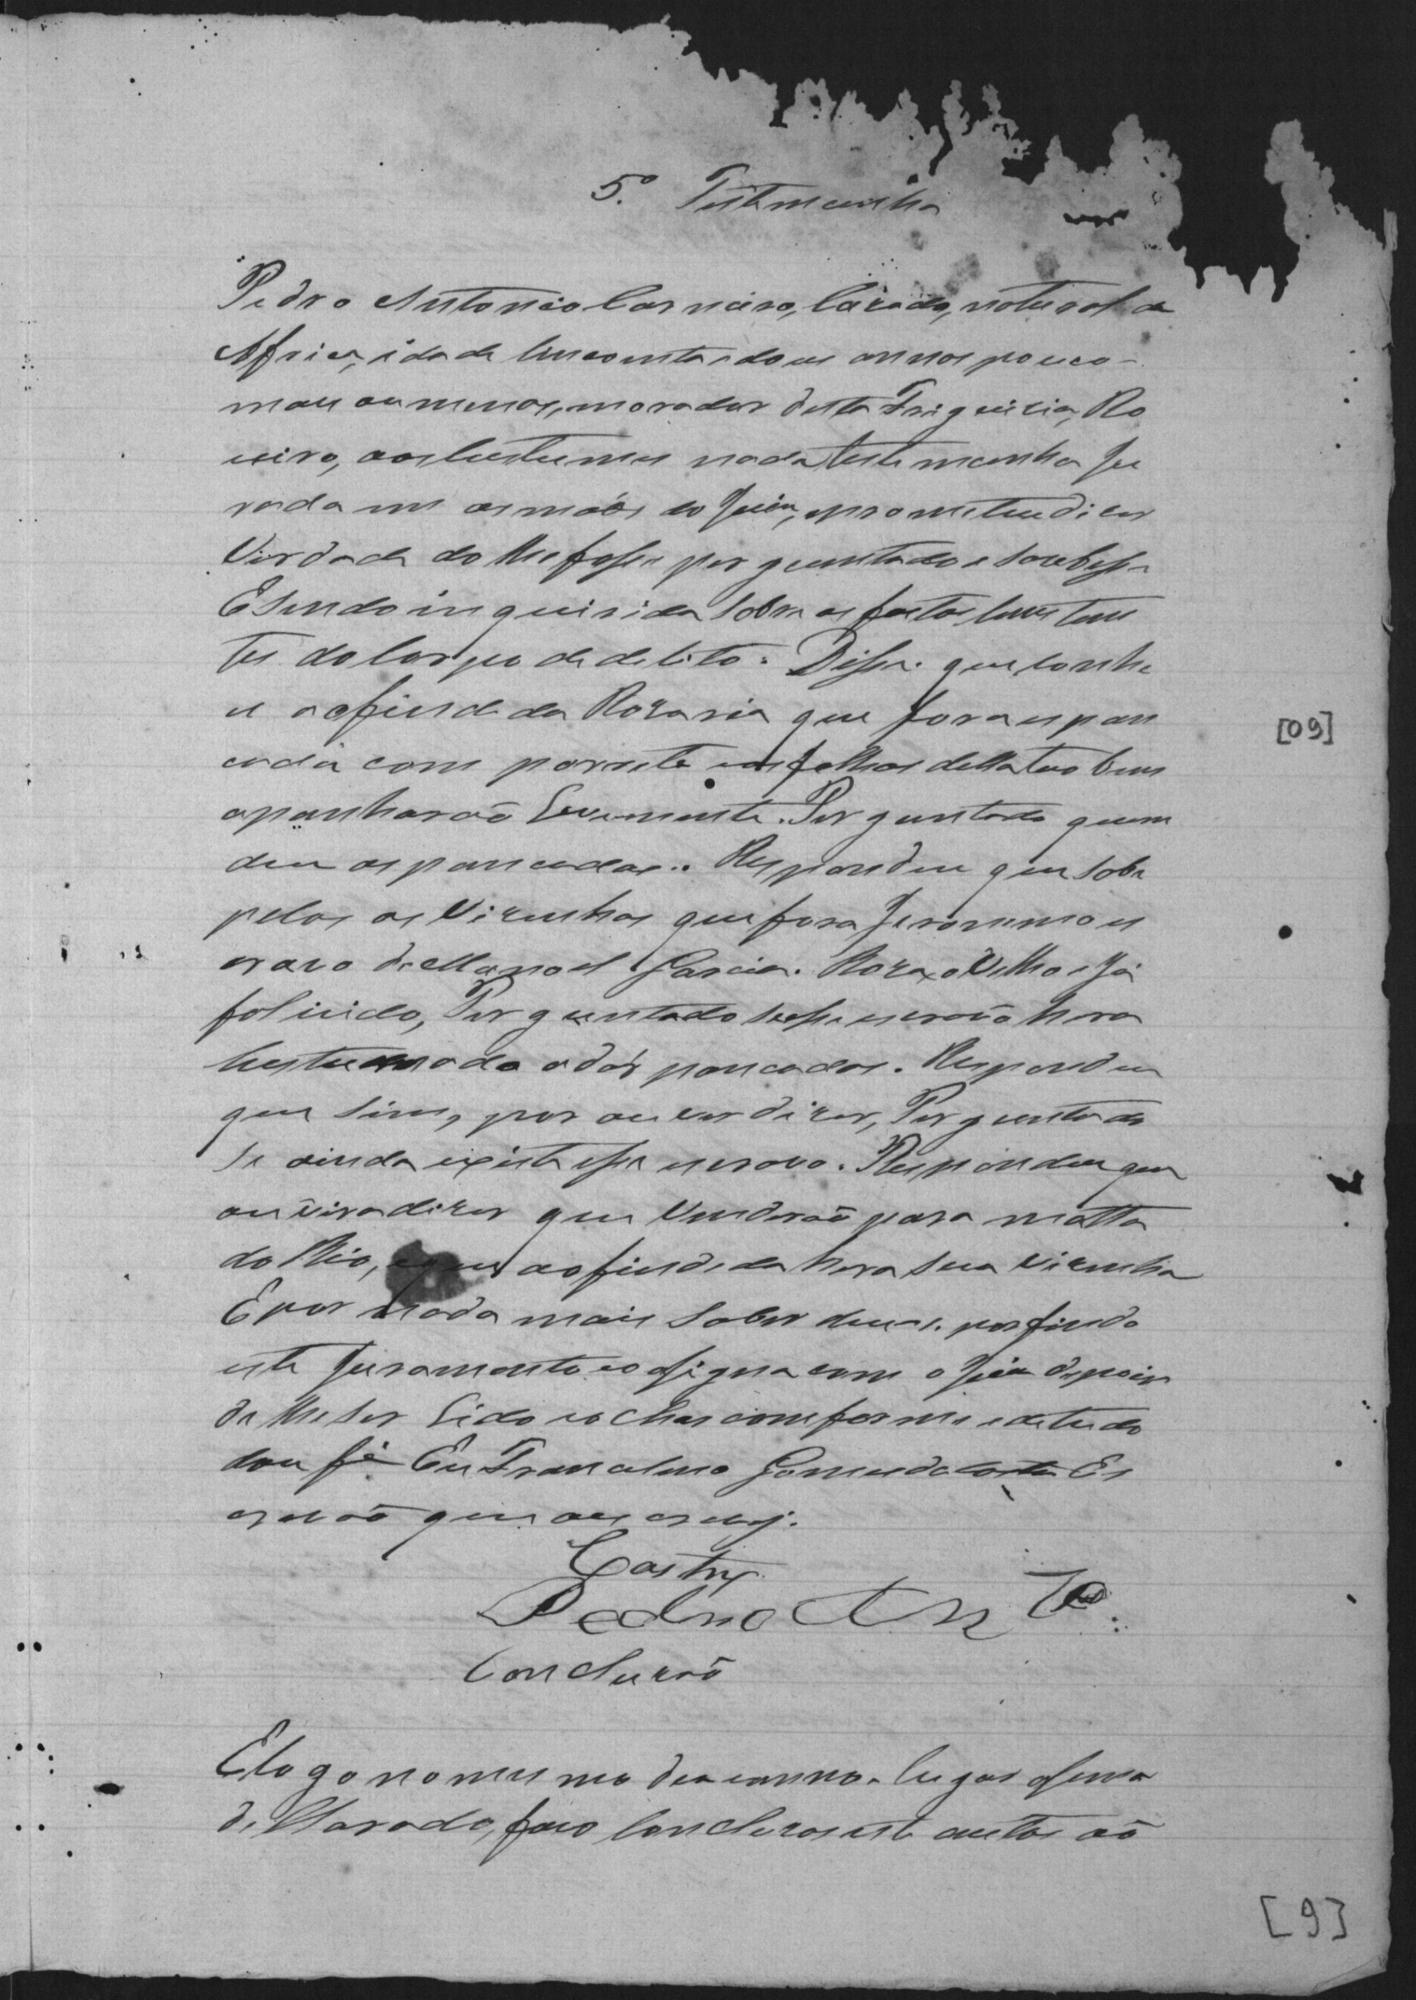 5.ª Testemunha
Pedro Antonio Carneiro, Cazado, natural de
Africa, idade Cincoenta e dous annos pouco
mais ou menos, morador desta Freguizia, Ro
ceiro, aos Custumes nada testemunha Ju
rada em as mãos do Juiz, e prometeu dizer
Verdade do lhe fosse perguntado e soubesse
E sendo inquirida sobre os factos Constan
tes do Corpo de delito. Disse que Conhe
ce a offendida Rozaria que fora espan
cada com porrete e os filhos della tão bem
apanharão Levemente. Perguntado quem
deu as pancadas. Respondeu que sobe
pelos os Vizinhos que fora Jeronimo es
cravo de Manoel Garcia Roza, o Velho e já
folicido, Perguntado se esse escravão hera
Custumado a dar pancadas. Respondeu
que sim, por ouvir dizer, Perguntado
se ainda existe esse escravo. Respondeu que
ouvira dizer que Venderão para matta
do Rio, e que a offendida hera sua Vizinha
E por nada mais Saber deu-se por findo
este Juramento e assigna com o Juiz depois
de lhe ser Lido e o achar comforme e de tudo
dou fé Eu Francelino Gomes da Costa Es
crivão que ou escrevj.
Castro
Pedro An to
Concluzaõ
E logo no mesmo dia e anno e lugar assima
declarado, faço Concluzos este autos aõ
[09]
[9]